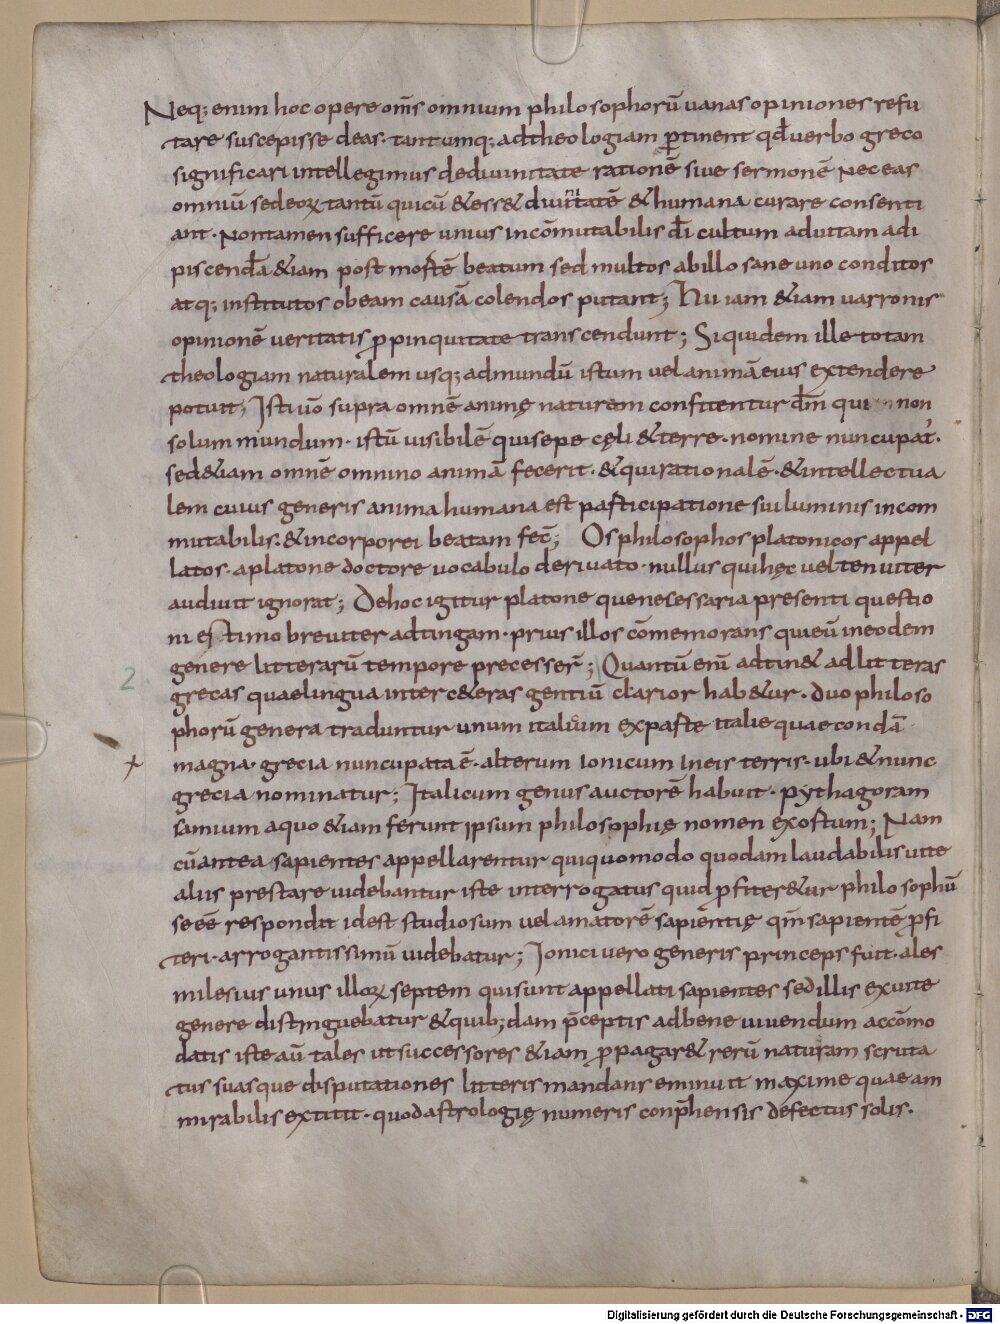 Neq; enim hoc opere om̄s omnium philosophorū uanas opiniones refu
tare suscepisse deas. tantumq; ad theologiam p̱tinent qđ uerbo greco
significari intellegimus de diuinitate rationē siue sermonē Neceas
omniū sed eoꝝ tantū qui cū & ess& diuinitatē & humana curare consenti
ant. Non tamen sufficere unius incōmutabilis dī cultum ad uitam adi
piscendā &iam post mortē beatum sed multos ab illo sane uno conditos
atq; institutos ob eam causā colendos putant; Hii iam &iam uarronis
opinionē ueritatis ꝓpinquitate transcendunt; Siquidem ille totam
theologiam naturalem usq; ad mundū istum uel animā eius extendere
potuit; Isti ūo supra omnē animę naturam confitentur dm̄ qui non
solum mundum. istū uisibilē qui sepe cęli & terre. nomine nuncupat'.
sed &iam omnē omnino animā fecerit. & qui rationalē. & intellectua
lem cuius generis anima humana est participatione sui luminis incom
mutabilis. & incorporei beatam fec̄; Os philosophos platonicos appel
latos. a platone doctore uocabulo deriuato. nullus qui hęc uel tenuiter
audiuit ignorat; De hoc igitur platone que nesessaria presenti questio
ni estimo breuiter adtingam. prius illos cōmemorans qui eū in eodem
genere litterarū tempore precesser̄; Quantū enī adtin& ad litteras
grecas quae lingua inter c&eras gentiū clarior hab&ur. duo philoso
phorū genera traduntur unum italium ex parte italie quae condā
magna. grecia nuncupata ē. alterum ionicum in eis terris. ubi & nunc
grecia nominatur; Italicum genus auctorē habuit. pythagoram
samium a quo &iam ferunt ipsum philosophię nomen exortum; Nam
cū antea sapientes appellarentur qui quomodo quodam laudabilis uite
aliis prestare uidebantur iste interrogatus quid ꝓfiter&ur philosophū
se ēē respondit id est studiosum uel amatorē sapientię qm̄ sapientē ꝓfi
teri. arrogantissimū uidebatur; Ionici uero generis princeps fuit. ales
milesius unus illoꝝ septem qui sunt appellati sapientes sed illi sex uite
genere distinguebatur & quib; dam p̄ceptis ad bene uiuendum accōmo
datis iste aū tales ut successores &iam ꝓpagar& rerū naturam scruta
tus suasque disputationes litteris mandans eminuit maxime quae am
mirabilis extitit. quod astrologię numeris conp̄hensis defectus solis.
2
Digitalisierung gefördert durch die Deutsche Forschungsgemeinschaft - DFG